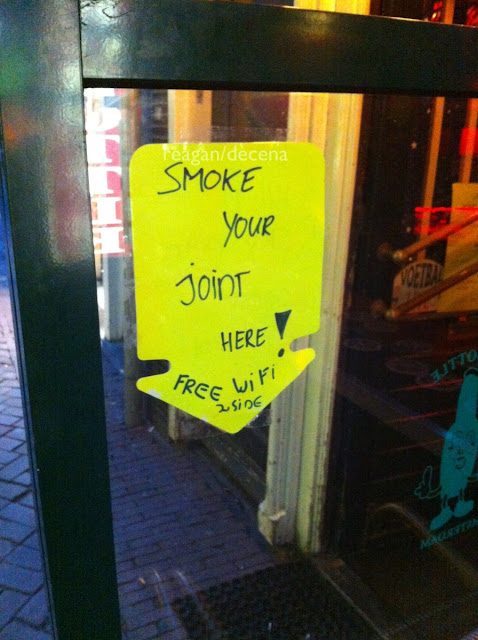 reagan/decena
SMOKE
YOUR
JOINT
HERE!
FREE WiFi
inSiDE
VOETBAL